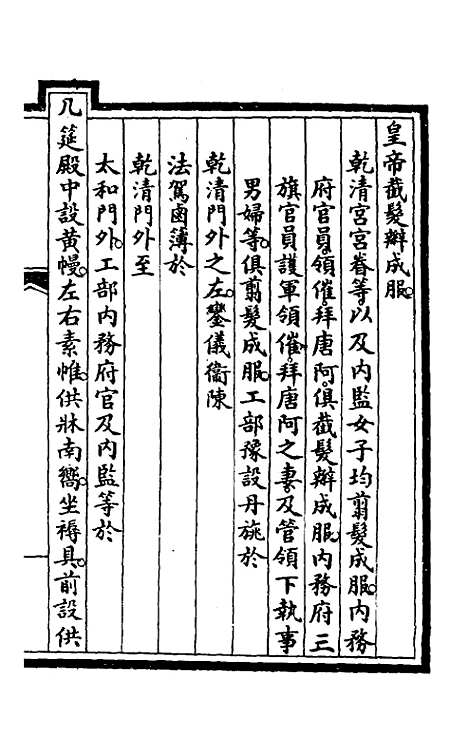 皇帝截髮辮成服
乾清宮宮眷等以及內監女子均翦髮成服內務
府官員領催拜唐阿俱截髮辮成服內務府三
旗官員護軍領催拜唐阿之妻及管領下執事
男婦等俱翦髮成服工部豫設丹旐於
乾清門外之左鑾儀衞陳
法駕鹵簿於
乾清門外至
太和門外工部內務府官及內監等於
几筵殿中設黃幔左右素帷供牀南嚮坐褥具前設供